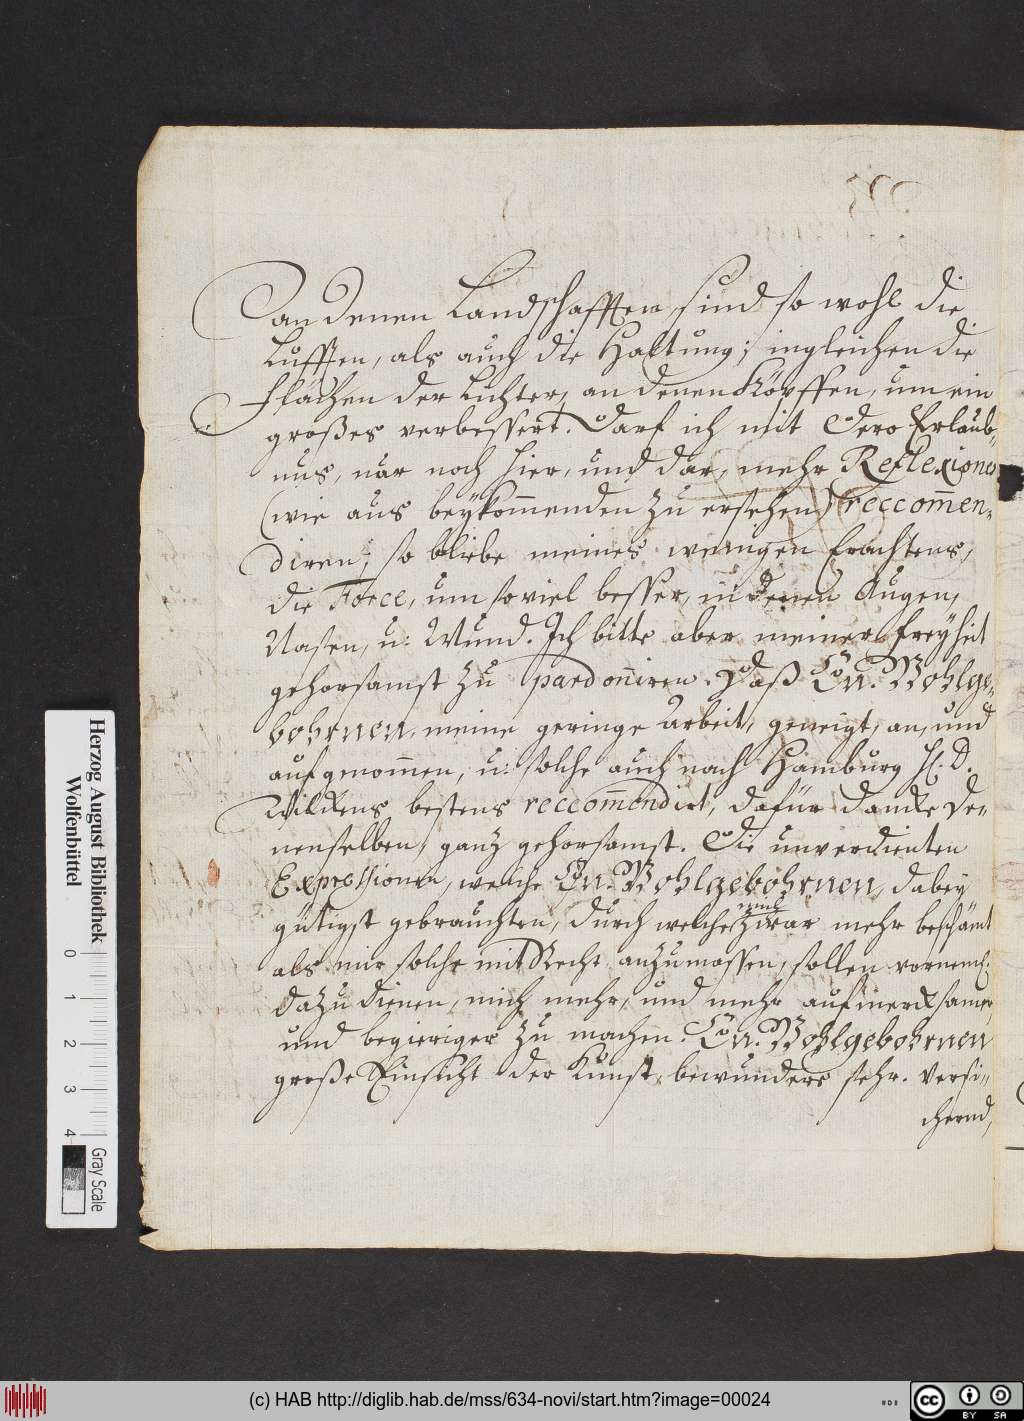 an denen Landschafften, sind so wohl die
Lufften, als auch die Haltung; ingleichen die
Flächen der Lichter, an denen Köpffen, um ein
großes verbessert. Darf ich mit Dero Erlaub-
nus, nur noch hier, und dar, mehr Reflexiones
(wie aus beykom̄enden zu ersehen) reccom̄en-
diren; so bliebe meines wenigen Erachtens,
die Force, um so viel besser, in denen Augen,
Nasen, u: Mund. Ich bitte aber meiner Freyheit
gehorsamst zu pardon̄iren. Daß Ew. Wohlge-
bohrnen, meine geringe Arbeit, geneigt, an, und
aufgenom̄en, u: solche auch nach Hamburg H. D.
Wilckens bestens reccom̄endirt, dafür dancke De-
nenselben, ganz gehorsamst. Die unverdienten
Expressionen, welche Ew. Wohlgebohrnen, dabey
gütigst gebrauchten, durch welche mich zwar mehr beschämt
als mir solche mit Recht anzumassen, sollen vorneml:
dazu dienen, mich mehr, und mehr aufmercksamer,
und begieriger zu machen. Ew. Wohlgebohrnen
große Einsicht der Kunst, bewundere sehr. Versi-
chernd,
Herzog August Bibliothek
Wolfenbüttel
0 1 2 3 4
Gray Scale
(c) HAB http://diglib.hab.de/mss/634-novi/start.htm?image=00024
cc BY SA